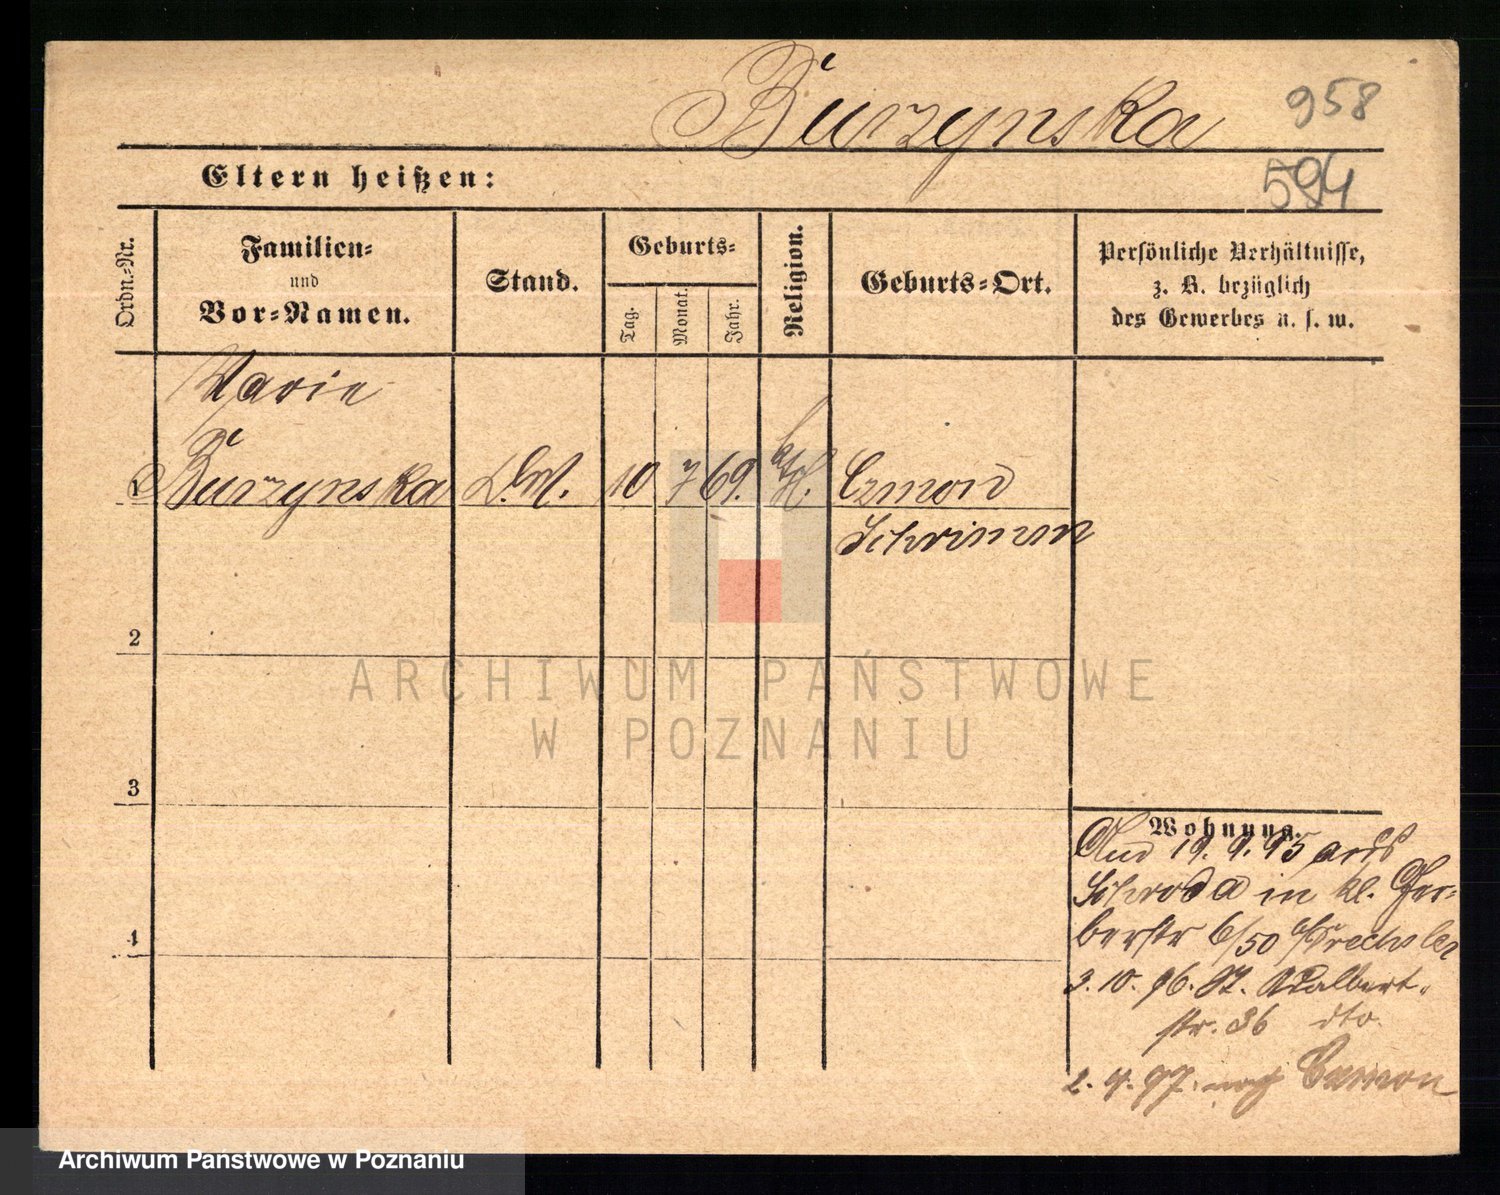 Burzynska
958
Eltern heißen:
594
Ordn.-Nr.
Familien-
und
Vor-Namen.
Stand.
Geburts-
Tag.
Monat.
Jahr.
Religion.
Geburts-Ort.
Persönliche Verhältnisse,
z. B. bezüglich
des Gewerbes u. s. w.
Marie
1 Burzynska D.M. 10 7 69. kth. Czmon
Schrimm
2
ARCHIWUM PAŃSTWOWE
W POZNANIU
3
Wohnung.
19. 9. 95 aus
Schroda in kl. Ger-
berstr 6/50 b/Drechsler
4
3. 10. 96. St. Adalbert-
str. 36 dto.
2. 4. 97. nach Czmon
Archiwum Państwowe w Poznaniu